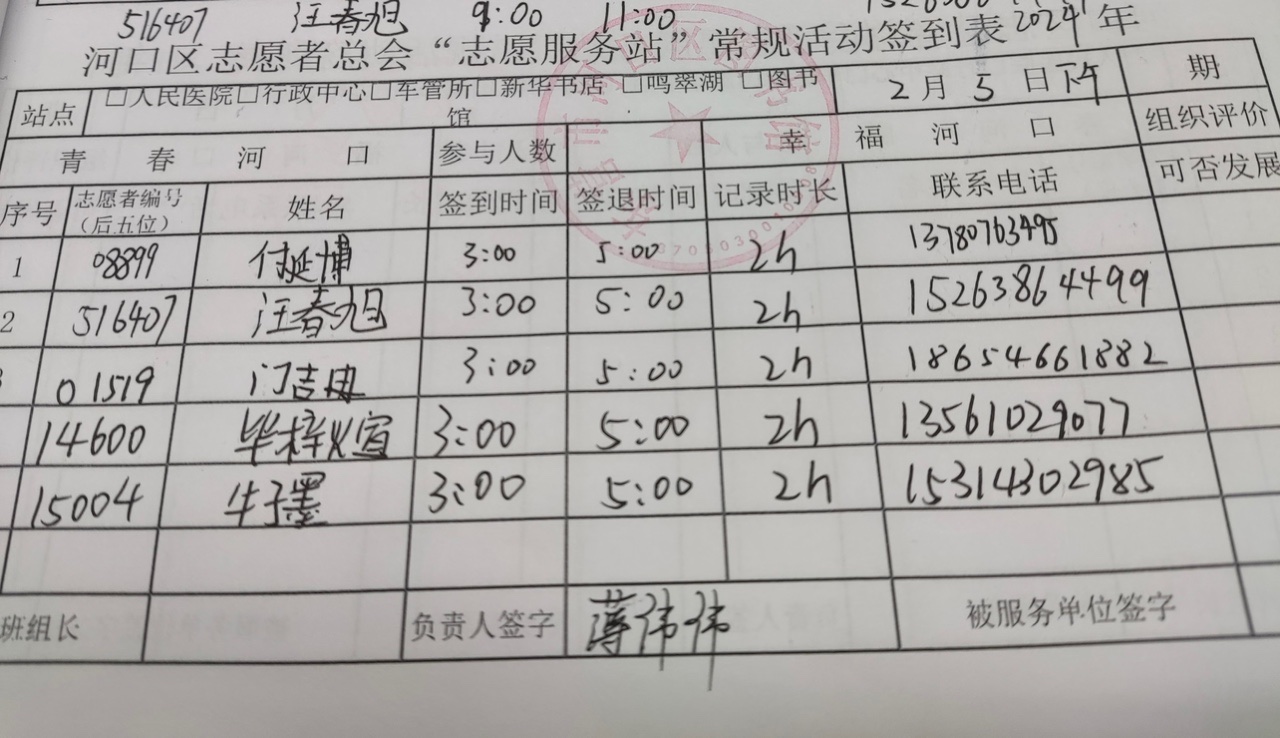 516407 汪春旭 9:00 11:00
河口区志愿者总会“志愿服务站”常规活动签到表2024年
站点 □人民医院□行政中心□车管所□新华书店 □鸣翠湖 □图书馆 2月5日下午 期
青春河口 参与人数 幸福河口 组织评价
序号 志愿者编号（后五位） 姓名 签到时间 签退时间 记录时长 联系电话 可否发展
1 08899 付延博 3:00 5:00 2h 13780763495
2 516407 汪春旭 3:00 5:00 2h 15263864499
01519 门吉 3:00 5:00 2h 18654661882
14600 毕梓煊 3:00 5:00 2h 13561029077
15004 牛子墨 3:00 5:00 2h 15314302985
班组长 负责人签字 薄伟伟 被服务单位签字